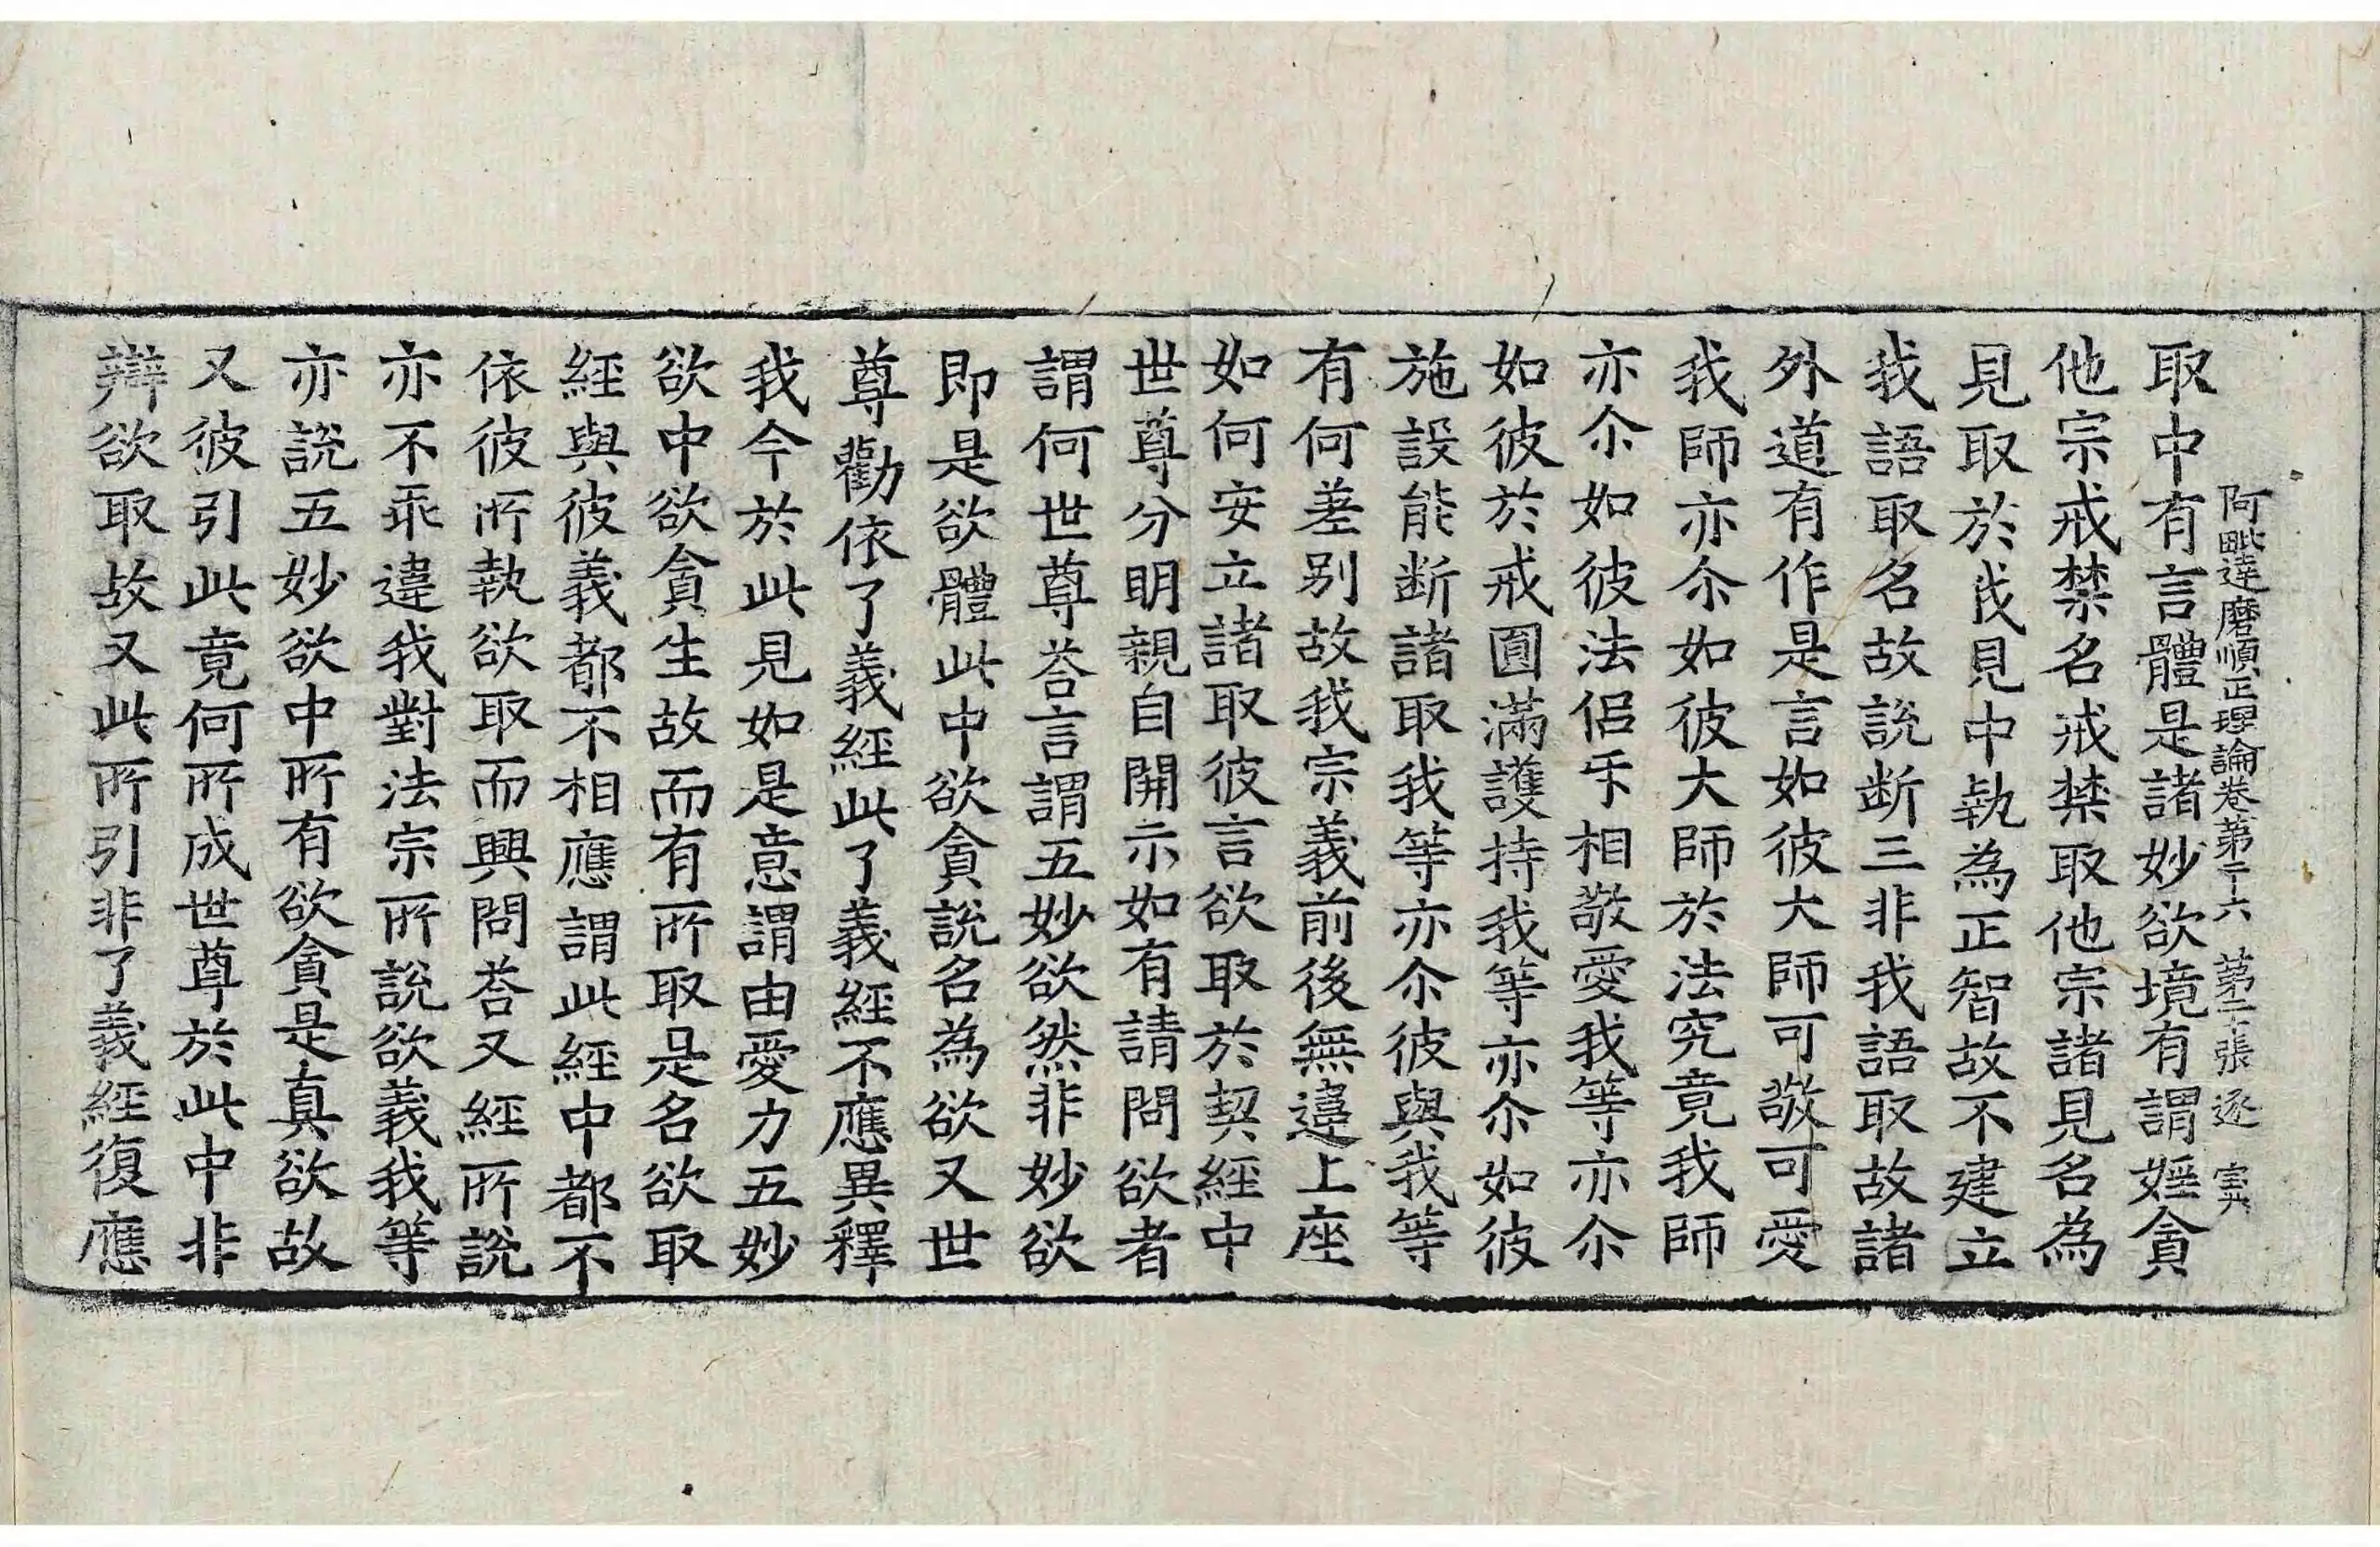 阿毗達磨順正理論卷第二十六 第二十張 逐
取中有言體是諸妙欲境有謂婬貪
他宗戒禁名戒禁取他宗諸見名為
見取於我見中執為正智故不建立
我語取名故說断三非我語取故諸
外道有作是言如彼大師可敬可愛
我師亦尒如彼大師於法究竟我師
亦尒如彼法侣㸦相敬愛我等亦尒
如彼於戒圓滿護持我等亦尒如彼
施設能断諸取我等亦尒彼與我等
有何差别故我宗義前後無違上座
如何安立諸取彼言欲取於契經中
世尊分明親自開示如有請問欲者
謂何世尊荅言謂五妙欲然非妙欲
即是欲體此中欲貪說名為欲又世
尊勸依了義經此了義經不應異釋
我今於此見如是意謂由愛力五妙
欲中欲貪生故而有所取是名欲取
經與彼義都不相應謂此經中都不
依彼所執欲取而興問荅又經所說
亦不乖違我對法宗所說欲義我等
亦說五妙欲中所有欲貪是真欲故
又彼引此竟何所成世尊於此中非
辯欲取故又此所引非了義經復應